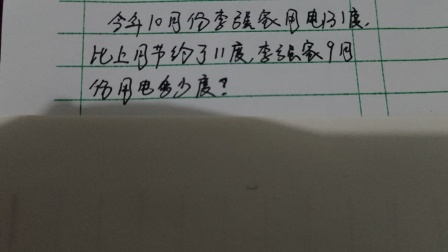 今年10月份李强家用电131度,
比上月节约了11度,李强家9月
份用电多少度?